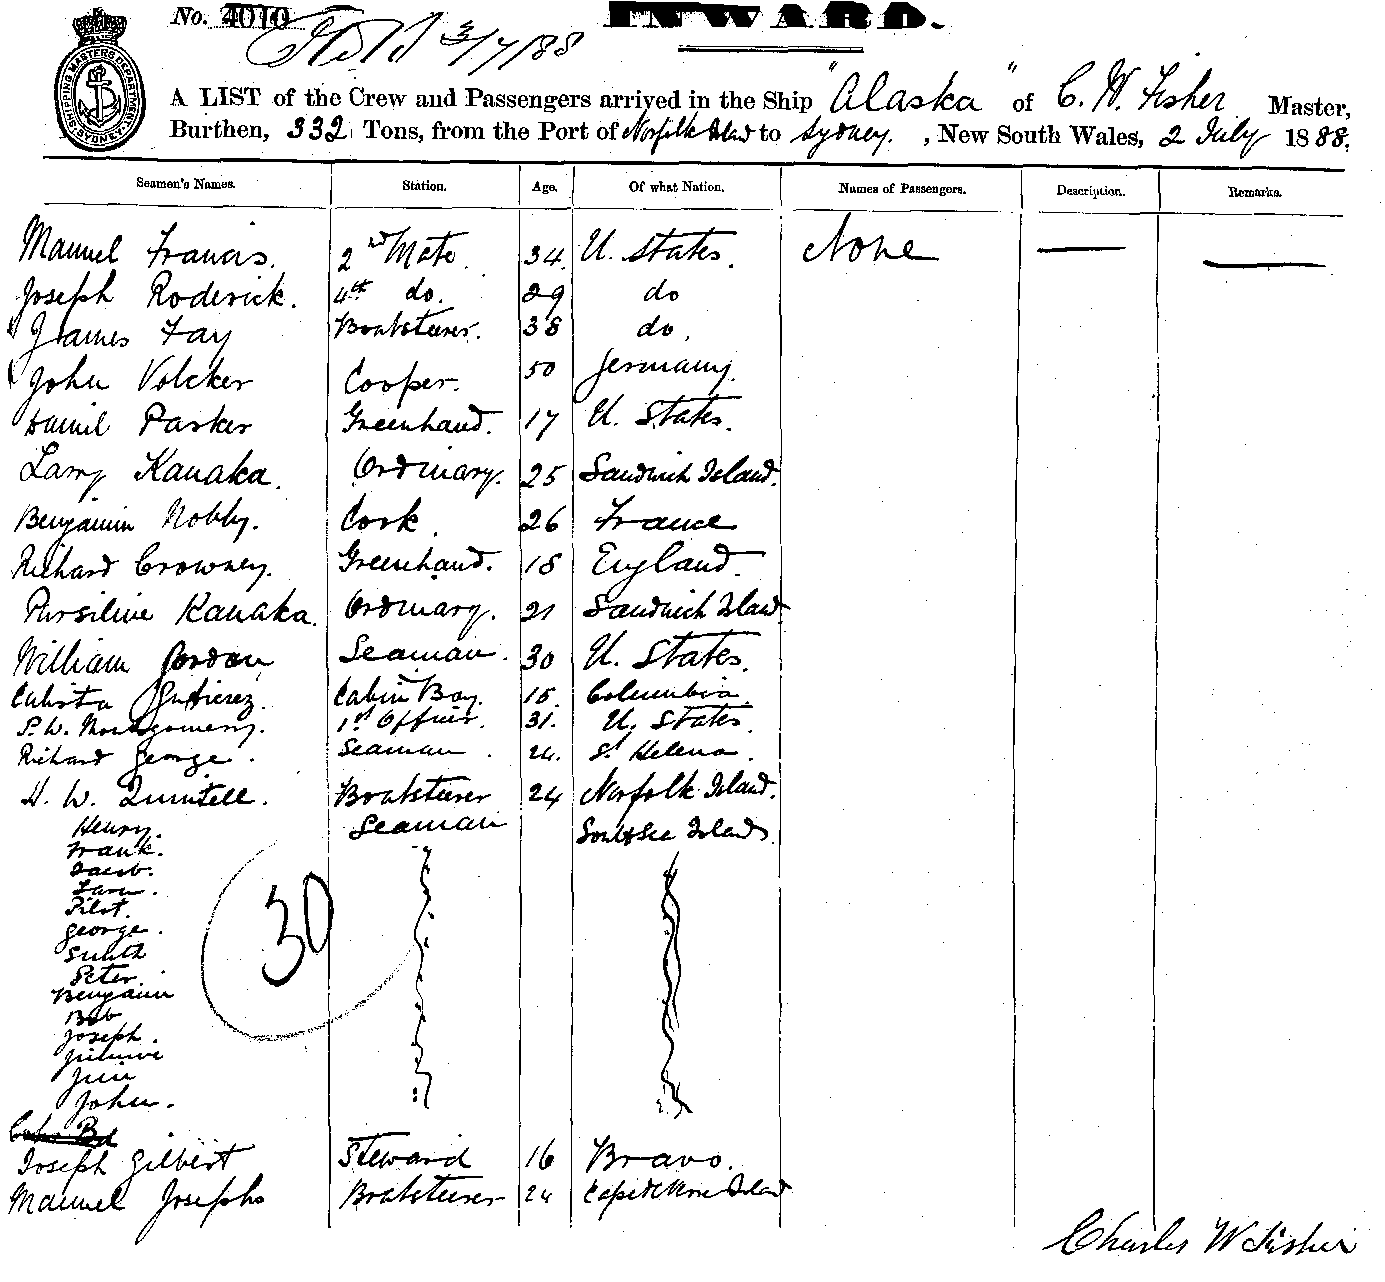 No. 4010
INWARD.
3/7/88
SHIPPING MASTERS DEPARTMENT
SYDNEY
A LIST of the Crew and Passengers arrived in the Ship "Alaska" of C. W. Fisher Master,
Burthen, 332 Tons, from the Port of Norfolk Island to Sydney. , New South Wales, 2 July 1888.
Seamen's Names. Station. Age. Of what Nation. Names of Passengers. Description. Remarks.
Manuel Francis. 2nd Mate. 34. U. States. None
Joseph Roderick. 4th do. 29 do
James Fay Boatsteerer. 38 do.
John Volcker Cooper. 50 Germany.
Daniel Parker Greenhand. 17 U. States.
Larry Kanaka. Ordinary. 25 Sandwich Island.
Benjamin Nobby. Cook. 26 France
Richard Crowney. Greenhand. 18 England.
Kanaka. Ordinary. 21 Sandwich Island
William Jordan Seaman. 30 U. States.
Gutierez. Cabin Boy. 15. Columbia.
Montgomery. 1st Officer. 31. U. States.
Richard George. Seaman. 24. St Helena.
H. W. Quintell. Boatsteerer 24 Norfolk Island.
Henry. Seaman South Sea Island
Frank.
Jacob.
Pilot.
George.
Smith
Peter.
Benjamin
Bob
Joseph.
Jim
John.
30
Joseph Gilbert Steward 16 Bravo.
Manuel Josephs Boatsteerer 24 Cape de Verde Island
Charles W Fisher